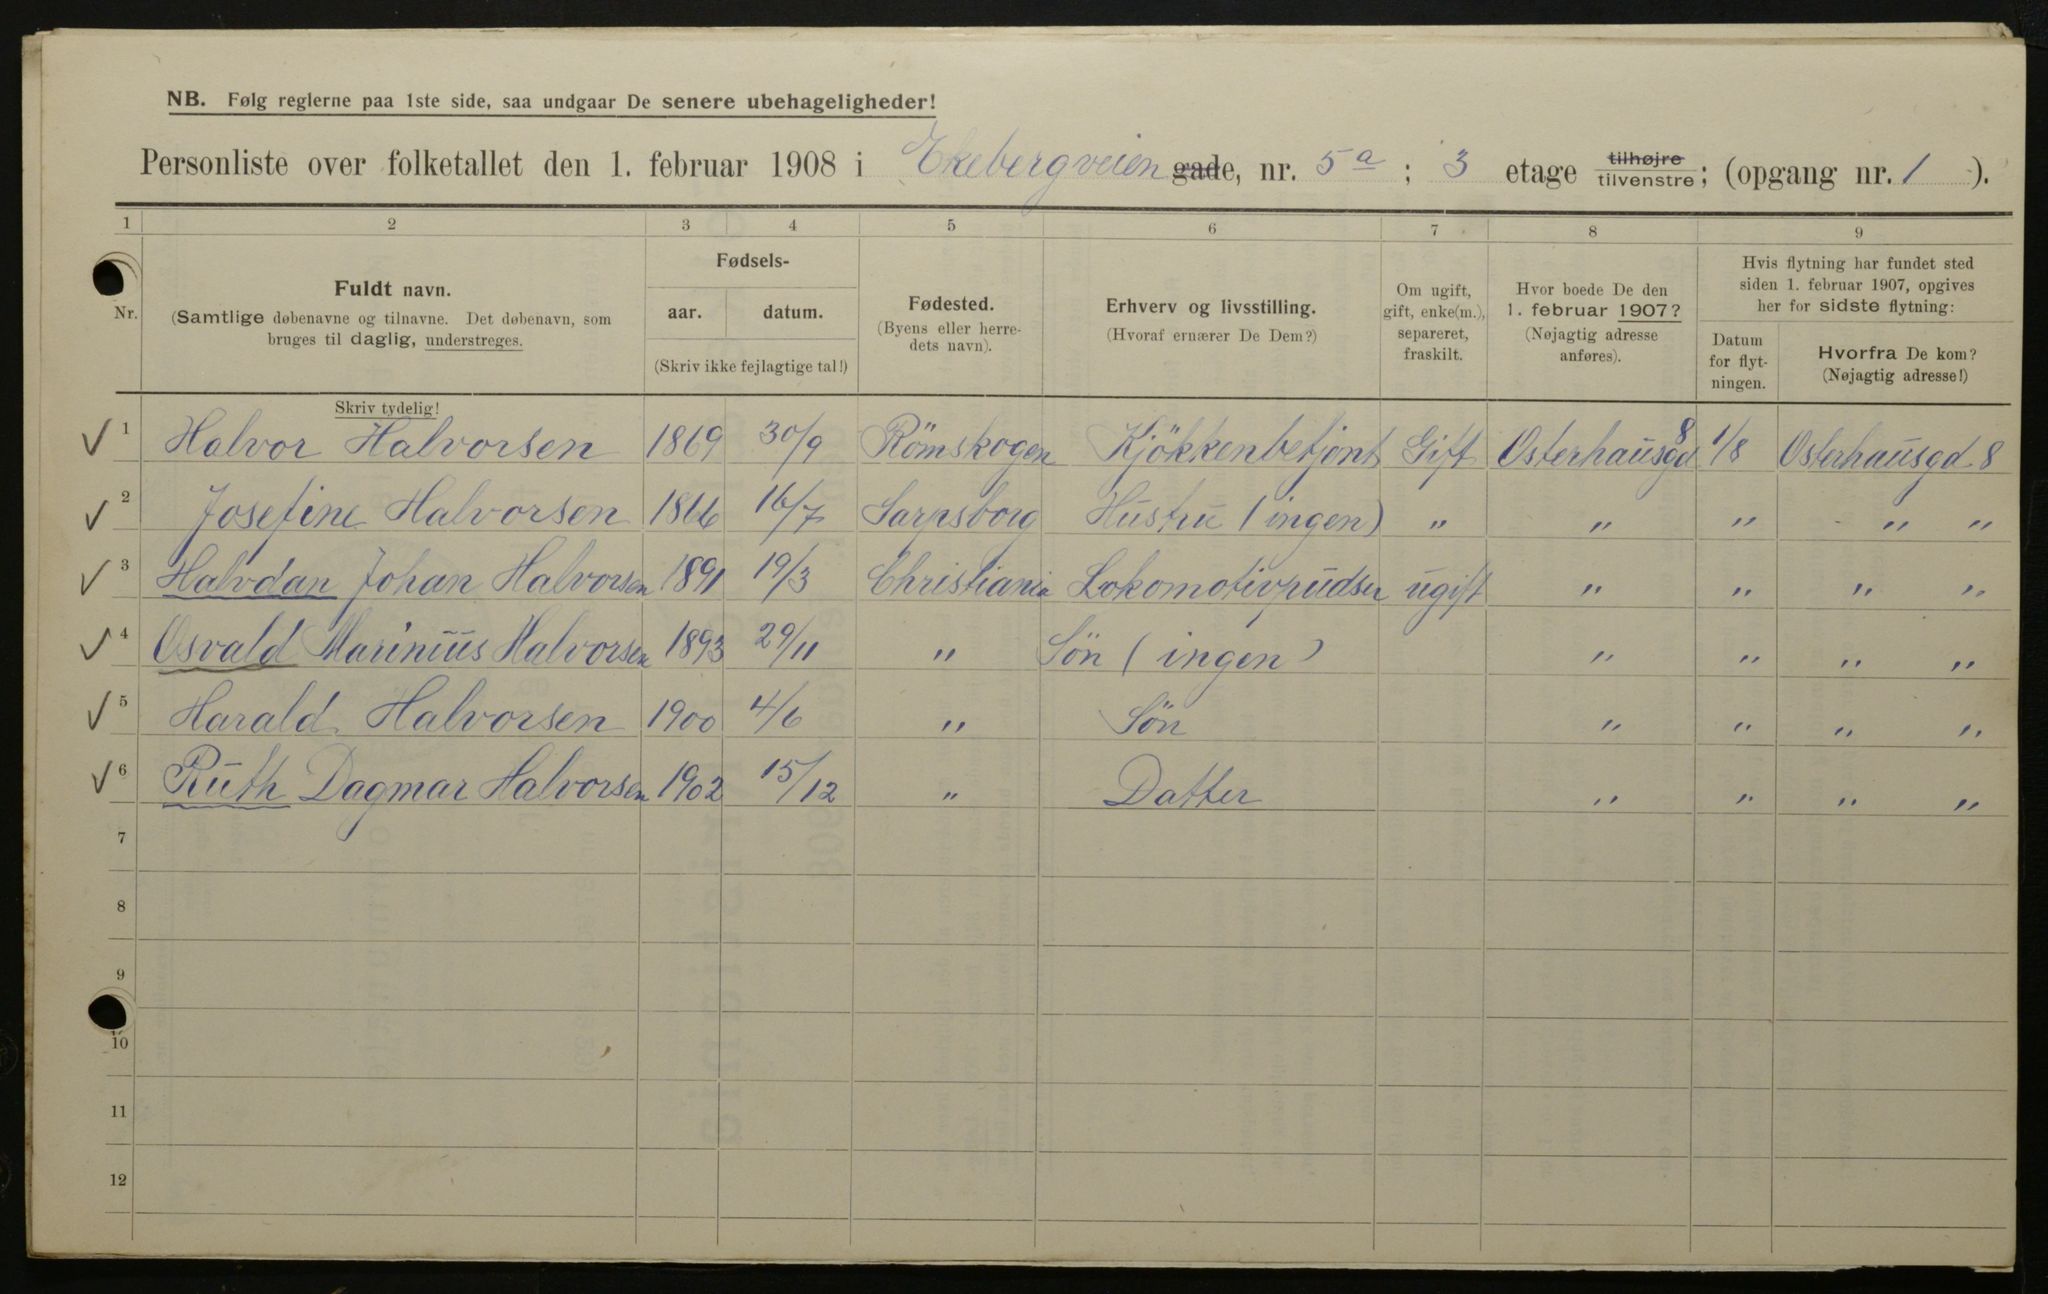 NB. Følg reglerne paa 1ste side, saa undgaar De senere ubehageligheder!
Personliste over folketallet den 1. februar 1908 i Ekebergveien gade, nr. 5a ; 3 etage tilhøjre tilvenstre ; (opgang nr. 1 ).
1 2 3 4 5 6 7 8 9
Nr.
Fuldt navn.
(Samtlige døbenavne og tilnavne. Det døbenavn, som
bruges til daglig, understreges.
Skriv tydelig!
Fødsels-
aar. datum.
(Skriv ikke fejlagtige tal!)
Fødested.
(Byens eller herre-
dets navn).
Erhverv og livsstilling.
(Hvoraf ernærer De Dem?)
Om ugift,
gift, enke(m.),
separeret,
fraskilt.
Hvor boede De den
1. februar 1907?
(Nøjagtig adresse
anføres).
Hvis flytning har fundet sted
siden 1. februar 1907, opgives
her for sidste flytning:
Datum
for flyt-
ningen.
Hvorfra De kom?
(Nøjagtig adresse!)
1 Halvor Halvorsen 1869 30/9 Römskogen Kjökkenbetjent Gift Osterhausgd 8 1/8 Osterhausgd 8
2 Josefine Halvorsen 1866 16/7 Sarpsborg Hustru (ingen) " " " " "
3 Halvdan Johan Halvorsen 1891 19/3 Christiania Lokomotivpudser ugift " " " "
4 Osvald Marinius Halvorsen 1893 29/11 " Sön (ingen) " " " "
5 Harald Halvorsen 1900 4/6 " Sön " " " "
6 Ruth Dagmar Halvorsen 1902 15/12 " Datter " " " "
7
8
9
10
11
12